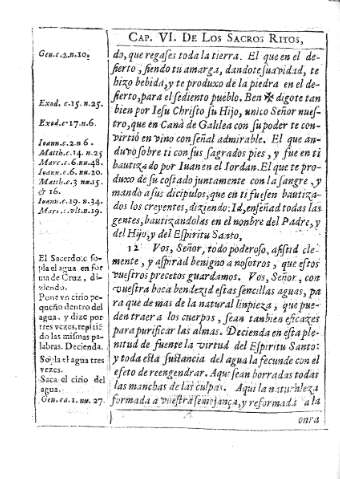 CAP. VI. DE LOS SACROS RITOS,
Gen. c. 2. n. 10.
Exod. c. 15. n. 25.
Exod. c. 17. n. 6.
Ioann. c. 2. n 6.
Matth. c. 14. n. 25
Marc. c. 6. nn. 48.
Ioann. c. 6. nn. 20.
Matth. c. 3 nn. 15.
& 16.
Ioann. c. 19. n. 34.
Marc. c. vlt. n. 19.
El Sacerdote so-
pla el agua en for
ma de Cruz, di-
ziendo.
Pone vn cirio pe-
queño dentro del
agua, y dize por
tres vezes, repitiē
do las mismas pa-
labras. Decienda.
Sopla el agua tres
vezes.
Saca el cirio del
agua.
Gen. ca. 1. nn. 27.
do, que regases toda la tierra. El que en el de-
sierto, siendo tu amarga, dandote suavidad, te
hizo bebida, y te produxo de la piedra en el de-
sierto, para el sediento pueblo. Ben ✠ digote tan
bien por Iesu Christo su Hijo, unico Señor nues-
tro, que en Caná de Galilea con su poder te con-
virtió en vino con señal admirable. El que an-
duvo sobre ti con sus sagrados pies, y fue en ti
bautizado por Iuan en el Iordan. El que te pro-
duxo de su costado juntamente con la sangre, y
mando a sus dicipulos, que en ti fuesen bautiza-
dos los creyentes, diziendo: Id, enseñad todas las
gentes, bautizandolas en el nombre del Padre, y
del Hijo, y del Espiritu Santo,
12 Vos, Señor, todo poderoso, assistid cle-
mente, y aspirad benigno a nosotros, que estos
vuestros precetos guardamos. Vos, Señor, con
vuestra boca bendezid estas sencillas aguas, pa
ra que de mas de la natural limpieza, que pue-
den traer a los cuerpos, sean tambien eficazes
para purificar las almas. Decienda en esta ple-
nitud de fuente la virtud del Espiritu Santo:
y toda esta sustancia del agua la fecunde con el
efeto de reengendrar. Aqui sean borradas todas
las manchas de las culpas. Aqui la naturaleza
formada a vuestra semejança, y reformada a la
onra